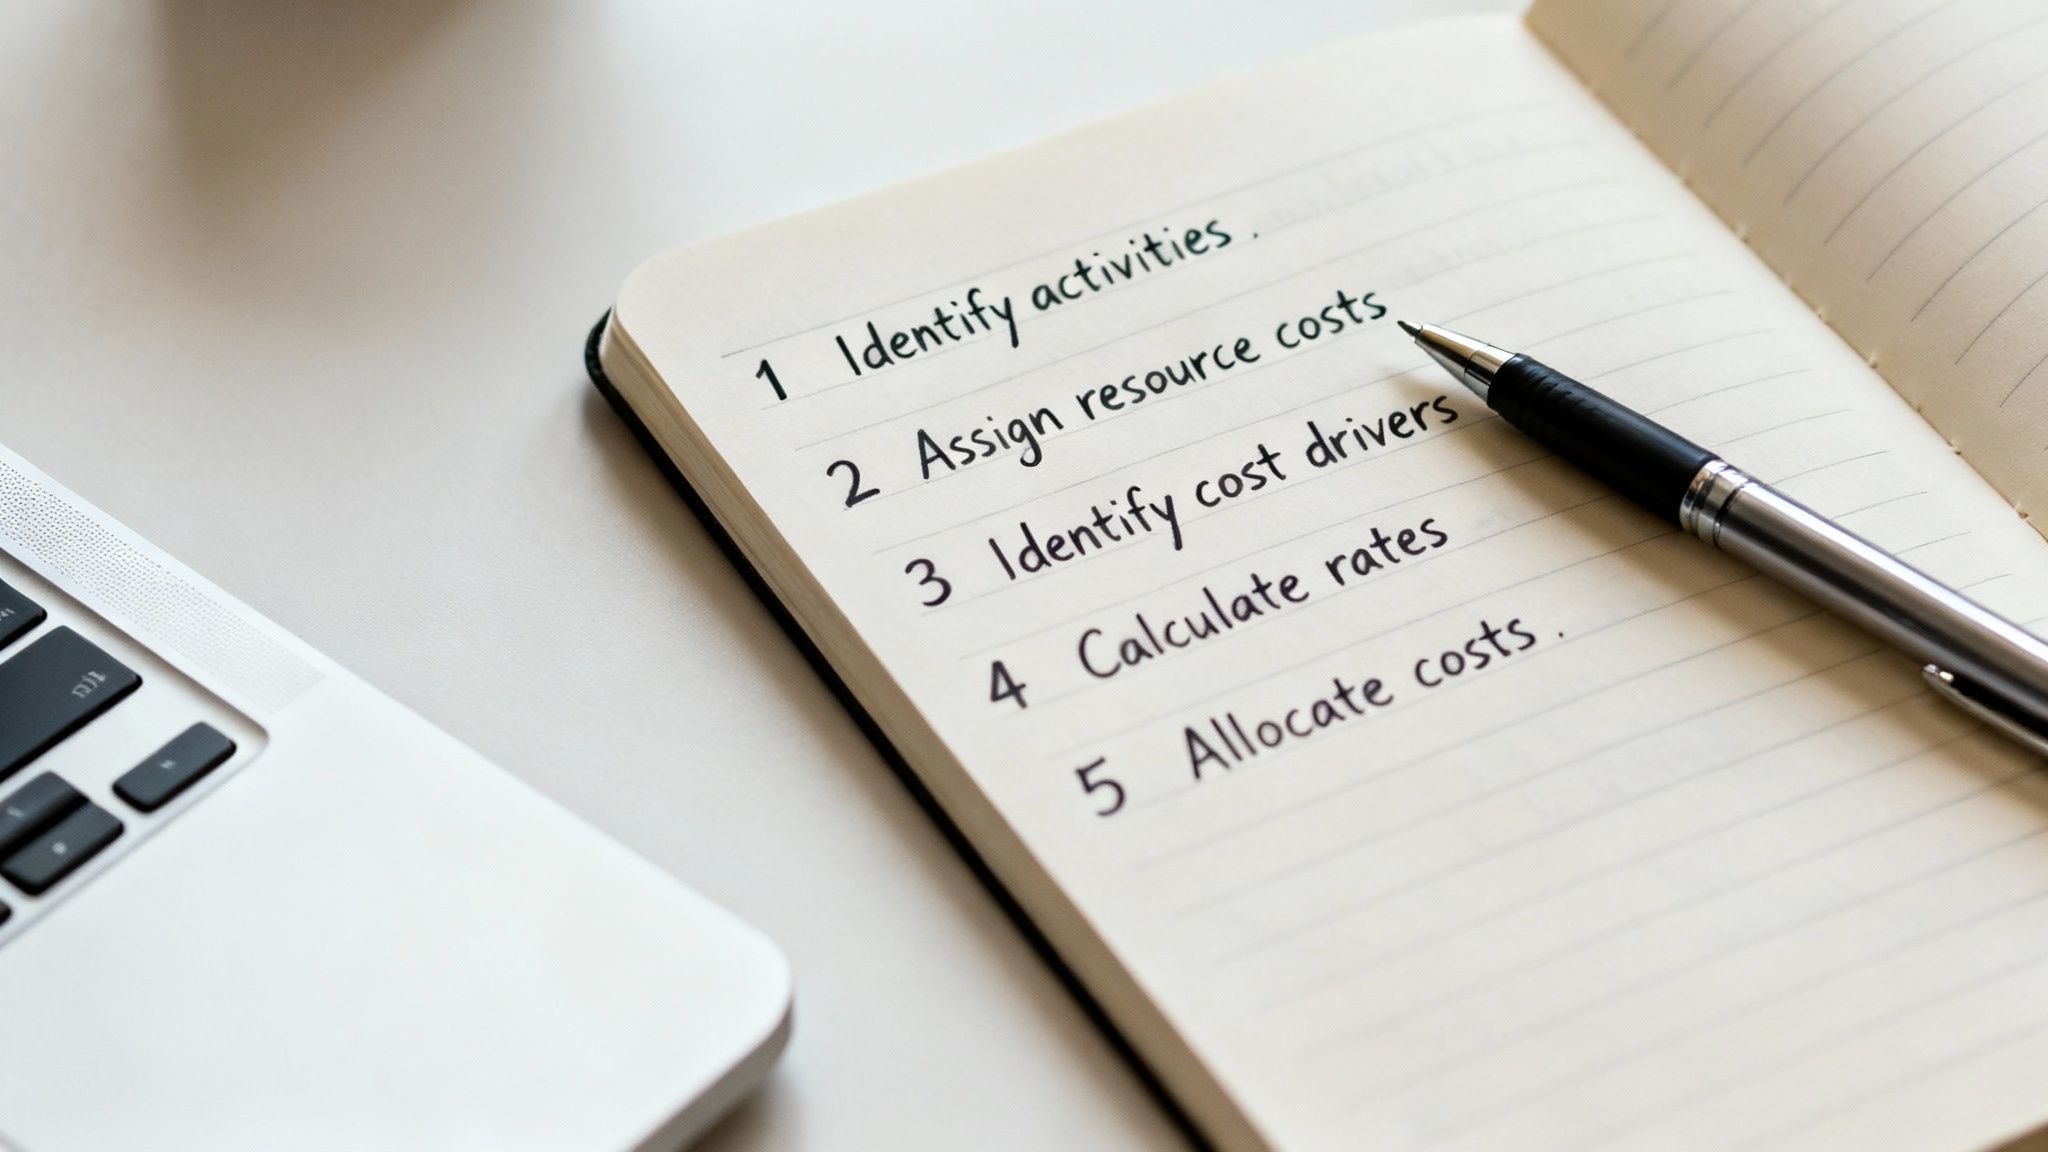 1 Identify activities.
2 Assign resource costs
3 Identify cost drivers
4 Calculate rates
5 Allocate costs.